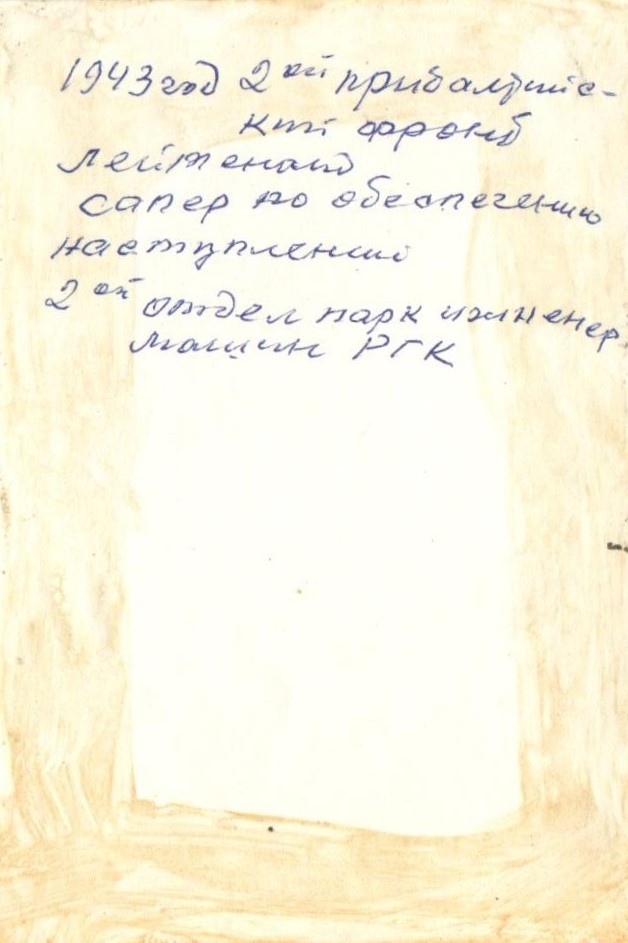 1943 год 2ой прибалтийс-
кий фронт
лейтенант
сапер по обеспечению
наступлении
2ой отдел парк инженер
машин РГК